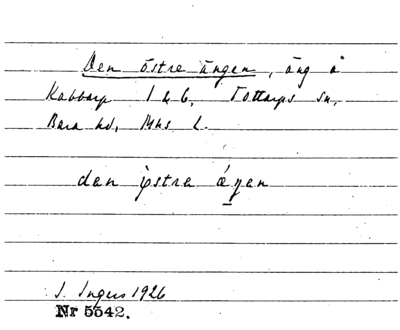 Den östre ängen, äng å
Kabbarp 1 & 6, Tottarps sn,
Bara hd, Mhs l.
dan östra áŋan
I. Ingers 1926
Nr 5542.